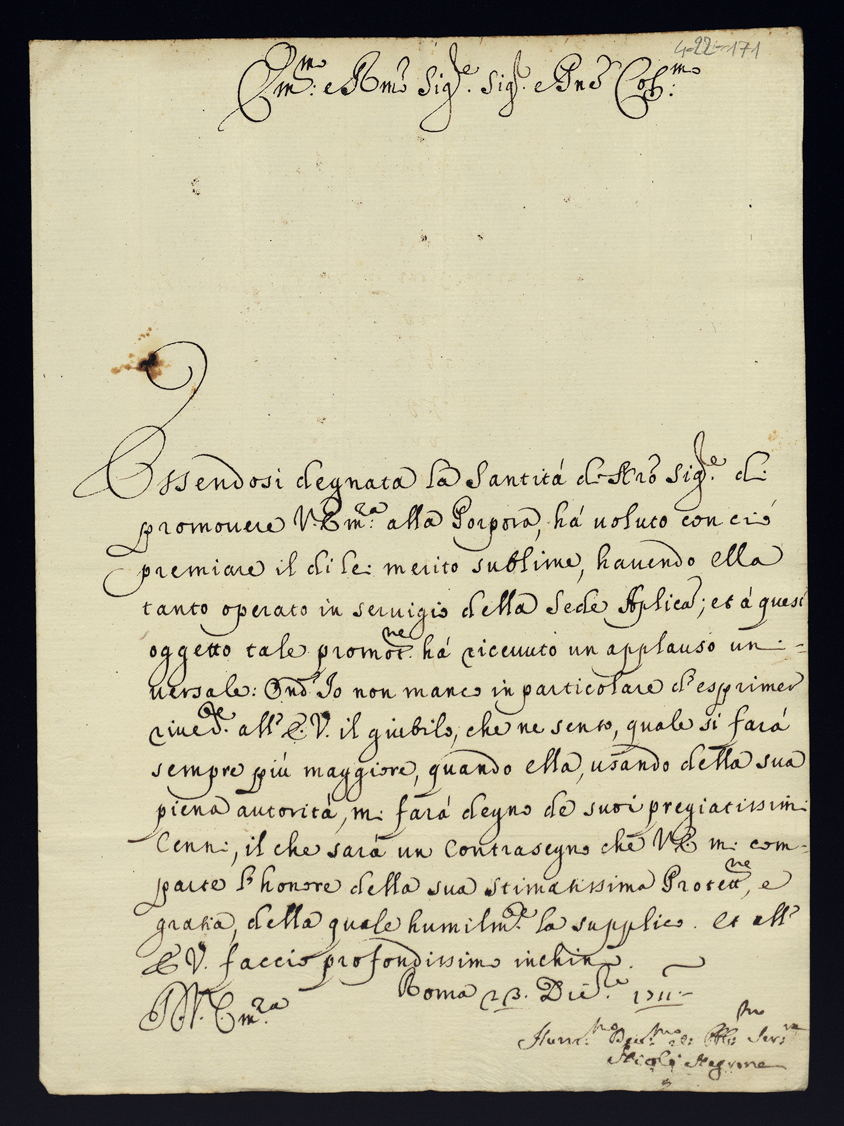 4-22-171
Em.mo e Rmo Sig.re Sig.re e Pne Col.mo
Essendosi degnata la Santità di Nro Sig.re di
promovere V. Em.za alla Porpora, há voluto con ciò
premiare il di lei merito sublime, havendo ella
tanto operato in servigio della Sede Aplica; et á quest
oggetto tale promot.ne há ricevuto un applauso uni-
versale: Ond' Io non manco in particolare d'esprimer
river.te all' E. V. il giubilo, che ne sento, quale si fará
sempre più maggiore, quando ella, usando della sua
piena autoritá, mi fará degno de suoi pregiatissimi
Cenni, il che sará un Contrasegno che V. E. mi com-
parte l'honore della sua stimatissima Protett.ne, e
gratia, della quale humilm.te la supplico. Et all'
E. V. faccio profondissimo inchino.
Roma 23. Dic.re 1711
D. V. Em.za
Hum.mo Dev.mo et Obl.mo Ser.re
Negrone